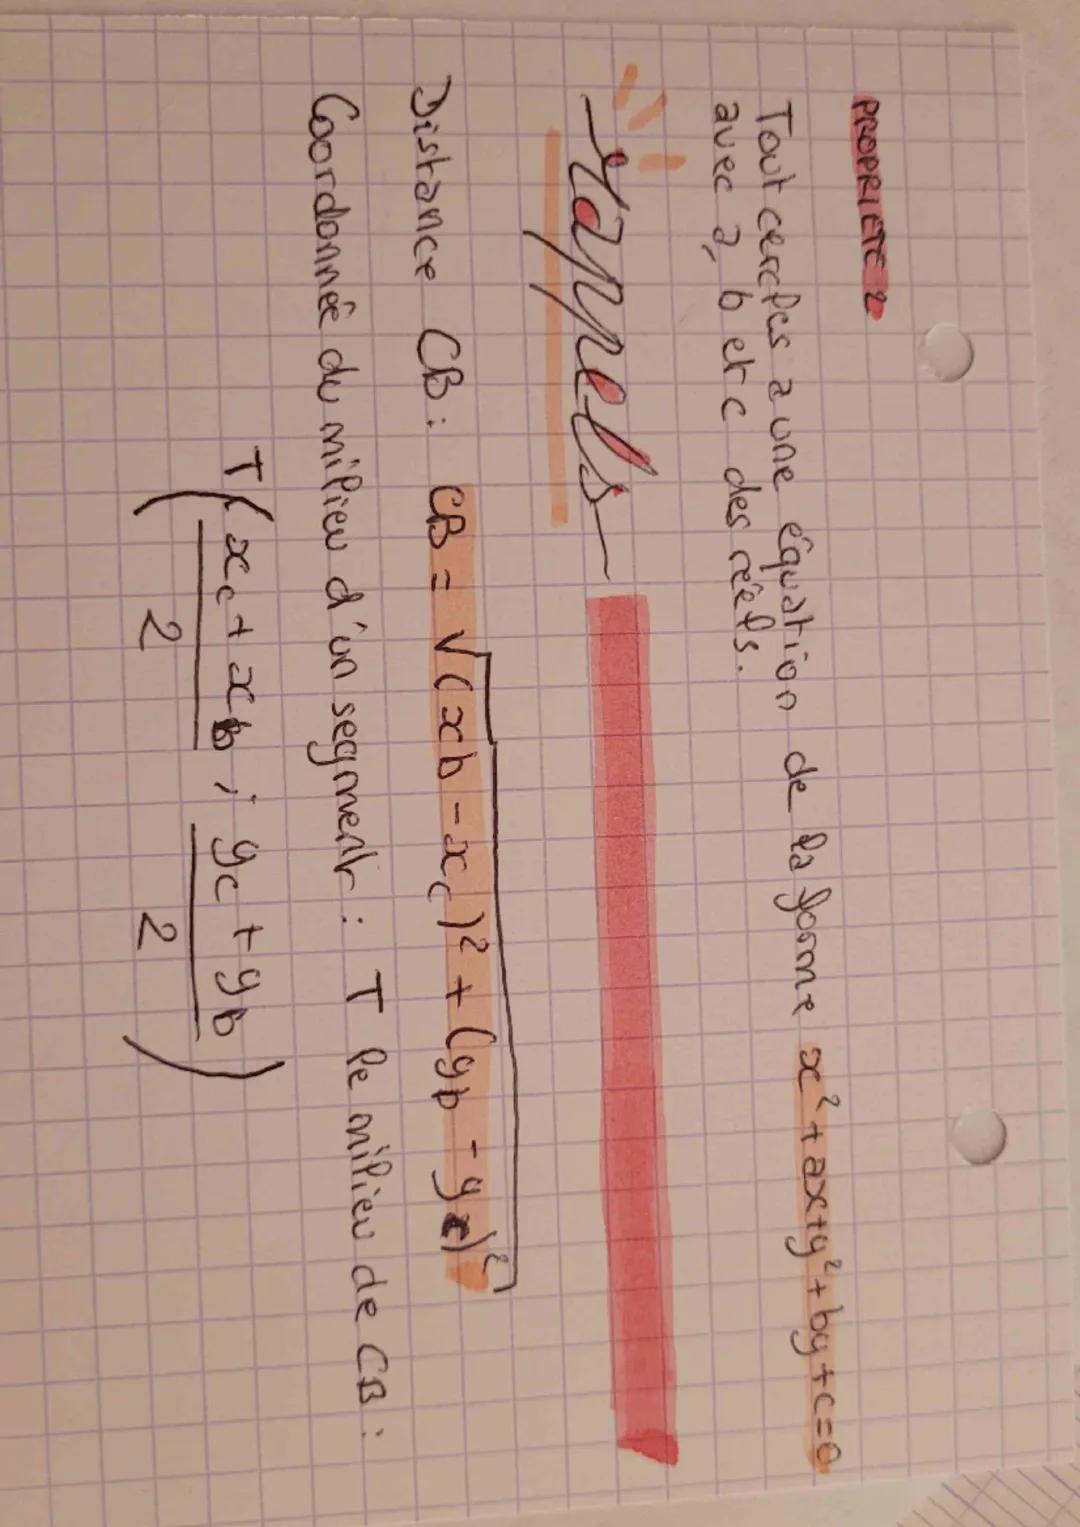 PROPRIETE 2
Tout cercles a une équation de la forme x² + ax + y² + by + c = 0
avec a, b et c des réels.
Rappels
Distance CB : CB = √(xb - xc)² + (yb - yc)²
Coordonnée du milieu d'un segment : T le milieu de CB :
T( xc + xb / 2 ; yc + yb / 2 )